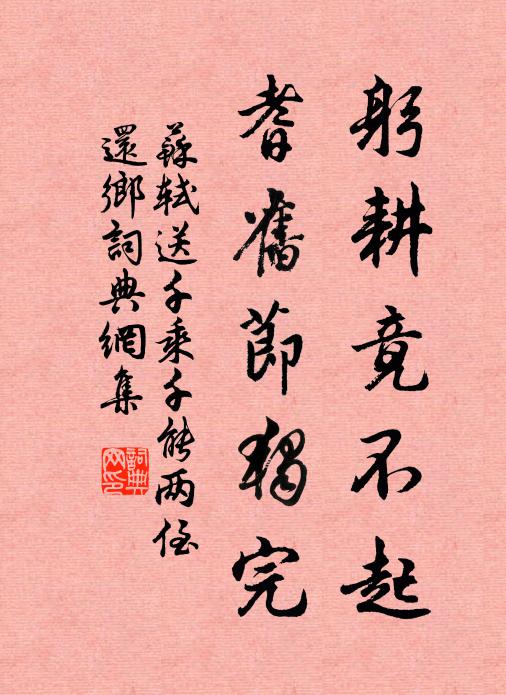 躬耕竟不起
耆舊節獨完
蘇軾送千乘千能两侄
還鄉詞典網集
詞典
网印